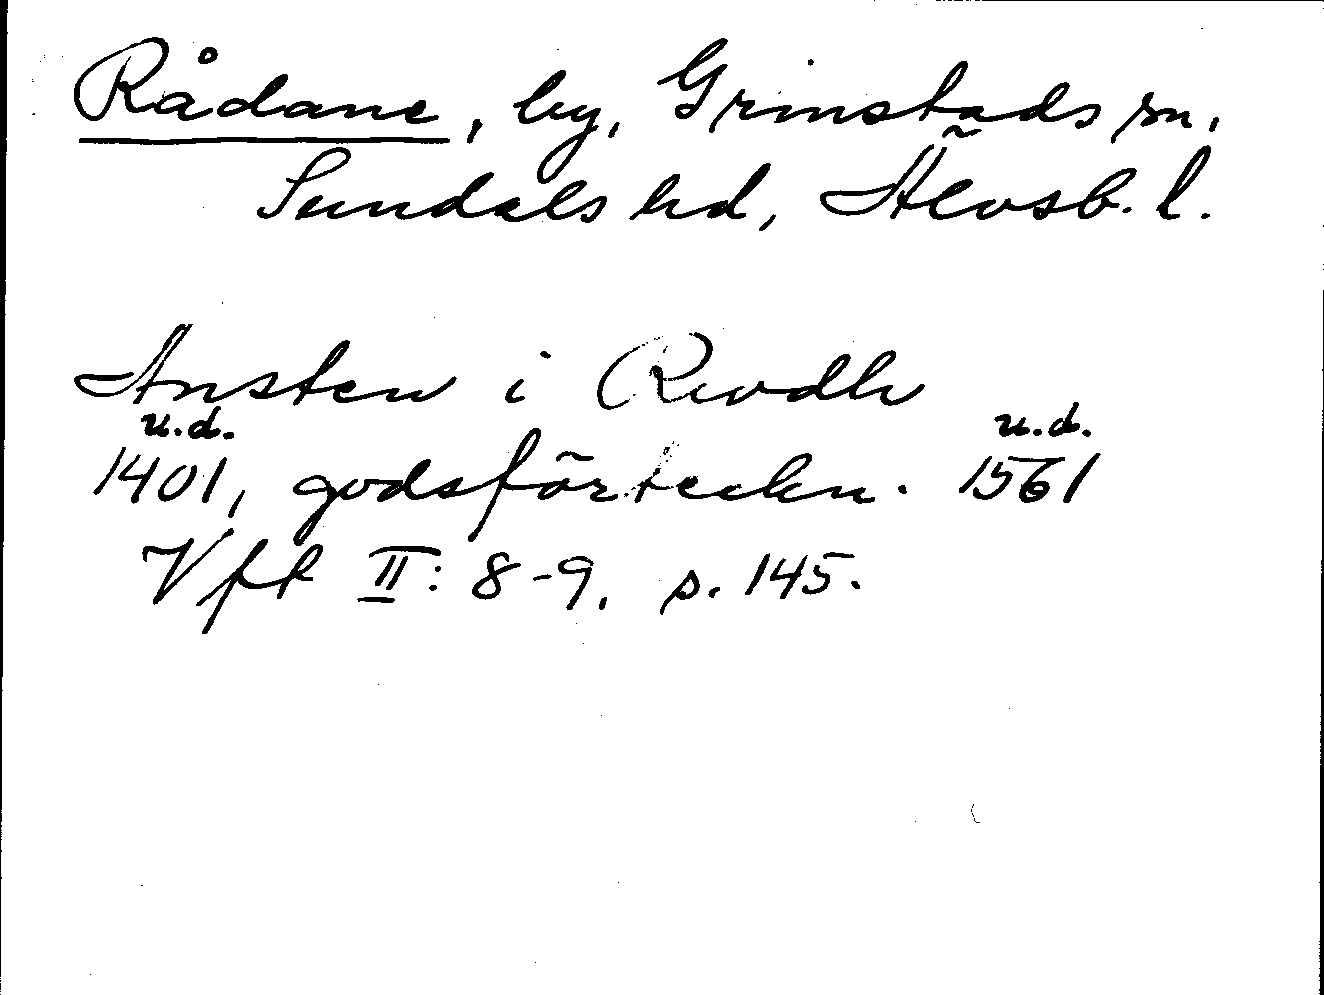 Rådane, by, Grinstads sn,
Sundals hd, Älvsb. l.
Ansten i Rwdh
u.d. u.d.
1401, godsförteckn. 1561
Vft II: 8-9, s. 145.